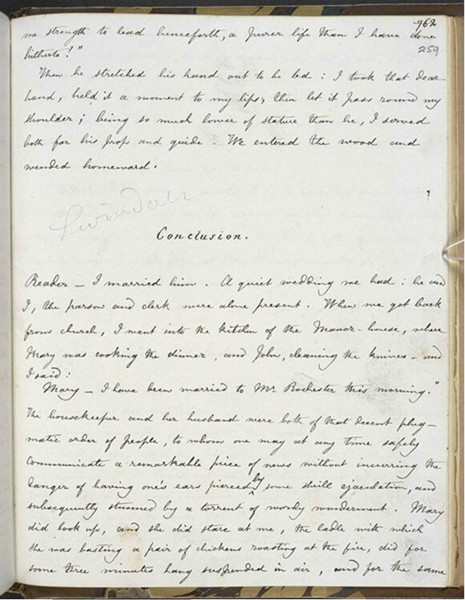 262
me strength to lead henceforth, a purer life than I have done
259
hitherto!"
Then he stretched his hand out to be led: I took that dear
hand, held it a moment to my lips, then let it pass round my
shoulder; being so much lower of stature than he, I served
both for his prop and guide. We entered the wood and
wended homeward.
Conclusion.
Reader — I married him. A quiet wedding we had: he and
I, the parson and clerk were alone present. When we got back
from church, I went into the kitchen of the Manor-house, where
Mary was cooking the dinner, and John, cleaning the knives — and
I said:
Mary — I have been married to Mr Rochester this morning."
The housekeeper and her husband were both of that decent phleg-
matic order of people, to whom one may at any time safely
communicate a remarkable piece of news without incurring the
danger of having one's ears pierced by some shrill ejaculation, and
subsequently stunned by a torrent of wordy wonderment. Mary
did look up, and she did stare at me, the ladle with which
she was basting a pair of chickens roasting at the fire, did for
some three minutes hang suspended in air, and for the same